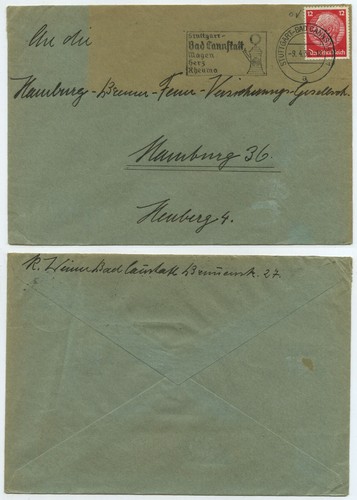 An die
Stuttgart-
Bad Cannstatt
Magen
Herz
Rheuma
STUTTGART-BAD CANNSTATT
a
12 12
Deutsches Reich
Hamburg-Bremer-Feuer-Versicherungs-Gesellsch.
Hamburg 36.
Heuberg 4.
R. Bad Cannstatt 27.